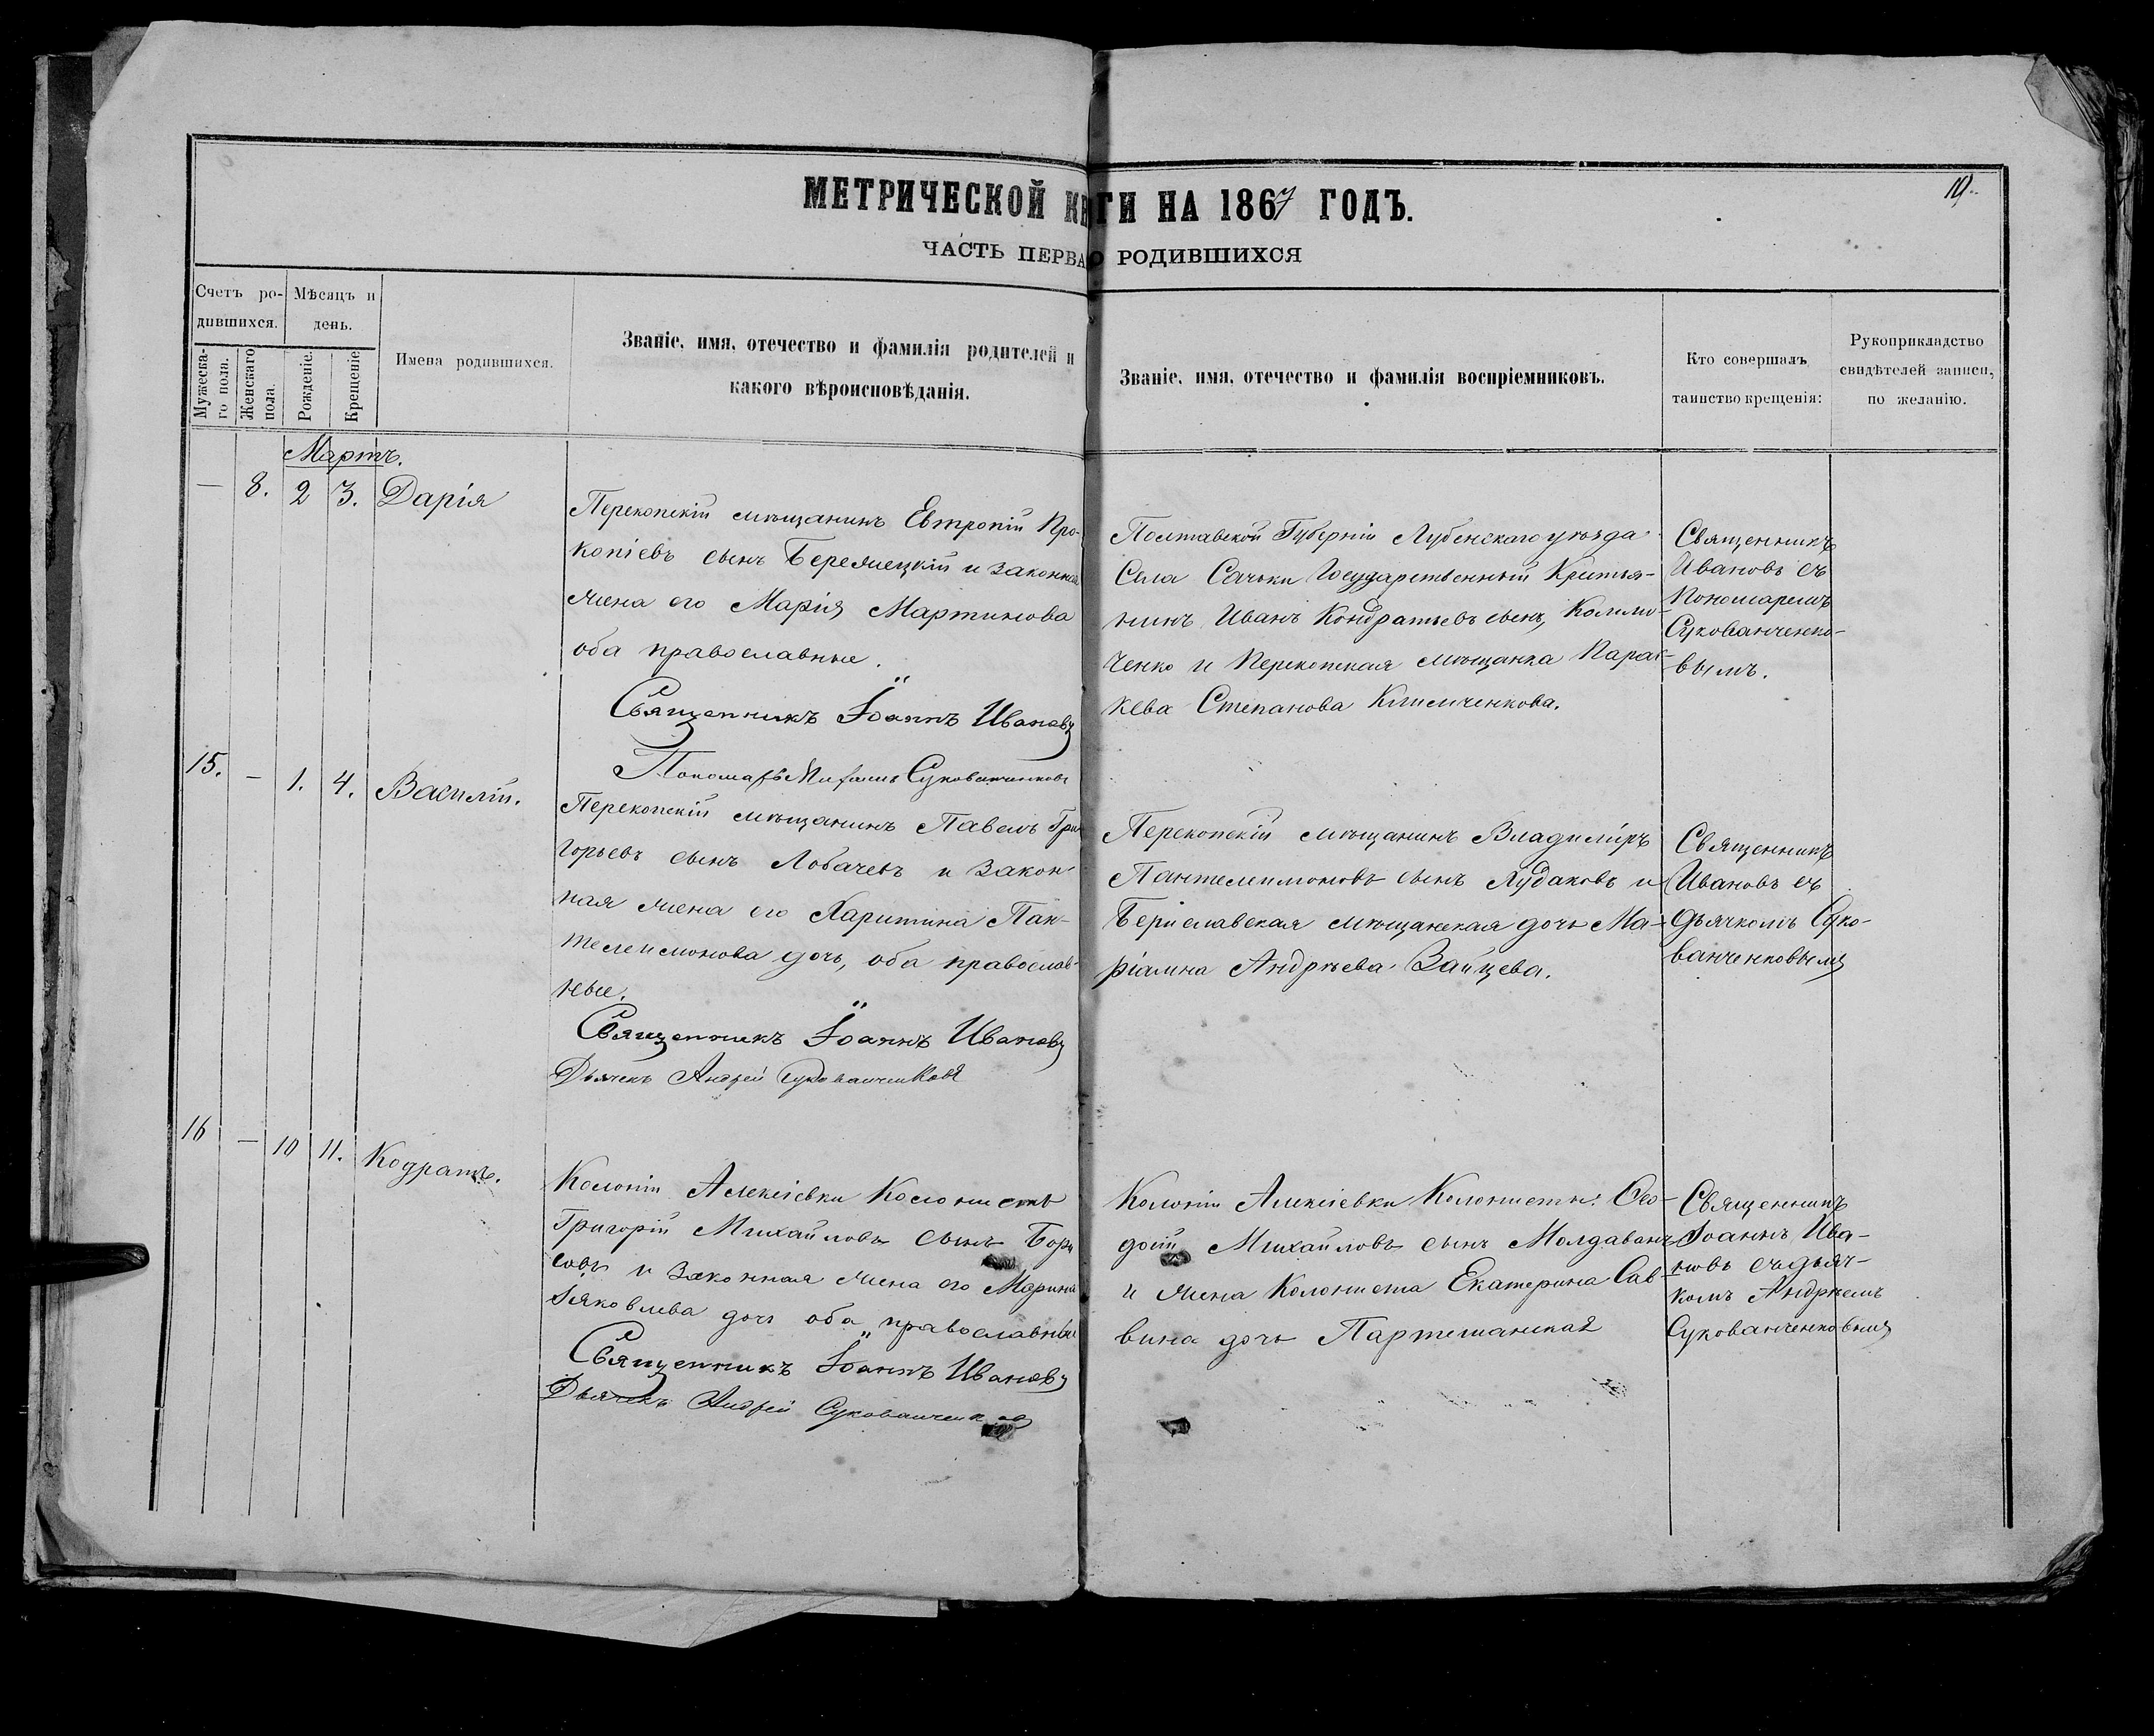 МЕТРИЧЕСКОЙ КНГИ НА 1867 ГОДЪ.
19.
ЧАСТЬ ПЕРВАО РОДИВШИХСЯ
Счетъ ро-
дившихся.
Мужеска-
го пола.
Женскаго
пола.
Мѣсяцъ и
день.
Рожденіе.
Крещеніе.
Имена родившихся.
Званіе, имя, отечество и фамилія родителей и
какого вѣроисповѣданія.
Званіе, имя, отечество и фамилія воспріемниковъ.
Кто совершалъ
таинство крещенія:
Рукоприкладство
свидѣтелей записи,
по желанію.
Мартъ.
— 8. 2 3. Дарія
Перекопскій мѣщанинъ Евтропій Про-
копіевъ сынъ Бережецкій и законная
жена его Марія Мартинова
оба православные.
Священникъ Іоаннъ Ивановъ
Пономарь Михаилъ Сукованченковъ
Полтавской Губерніи Лубенскаго уѣзда
Села Сачьки Государственный Крестья-
нинъ Иванъ Кондратьевъ сынъ,
ченко и Перекопская мѣщанка Парас-
кева Степанова Климченкова.
Священникъ
Ивановъ съ
Пономаремъ
Сукованченко-
вымъ.
15. — 1. 4. Василій.
Перекопскій мѣщанинъ Павелъ Гри
горьевъ сынъ Лобачевъ и Закон-
ная жена его Харитина Пан-
телеимонова дочь, оба православ-
ные.
Священникъ Іоаннъ Ивановъ
Дьячекъ Андрей Сукованченковъ
Перекопскій мѣщанинъ Владиміръ
Пантелеимоновъ сынъ Лудаковъ и
Бериславская мѣщанская дочь Ма-
ріамна Андрѣева Зайцева.
Священникъ
Ивановъ съ
дьячкомъ Суко-
ванченковымъ
16 — 10 11. Кодратъ.
Колоніи Алексіевки Колонистъ
Григорій Михайловъ сынъ Бори
совъ и Законная жена его Марина
Іяковлева дочь оба православные
Священникъ Іоаннъ Ивановъ
Дьячекъ Андрей Сукованченковъ
Колоніи Алексіевки Колонисты: Ѳео-
дотій Михайловъ сынъ Молдаванъ
и жена Колониста Екатерина Сав-
вина дочь Партешанская
Священникъ
Іоаннъ Ива-
новъ съ дьяч-
комъ Андрѣемъ
Сукованченковымъ